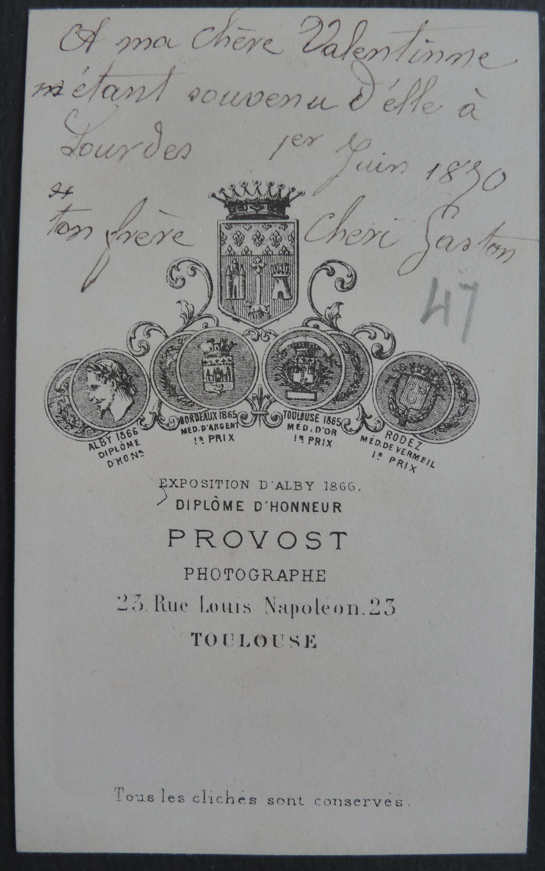 A ma chère Valentinne
m'étant souvenu d'élle à
Lourdes 1er Juin 1870
ton frère cheri Gaston
47
ALBY 1866
DIPLÔME
D'HONR
BORDEAUX 1865
MED. D'ARGENT
1R PRIX
TOULOUSE 1865
MED. D'OR
1R PRIX
RODEZ
MÉD. DE VERMEIL
1R PRIX
EXPOSITION D'ALBY 1866.
DIPLÔME D'HONNEUR
PROVOST
PHOTOGRAPHE
23. Rue Louis Napoleon. 23
TOULOUSE
Tous les clichés sont conservés.